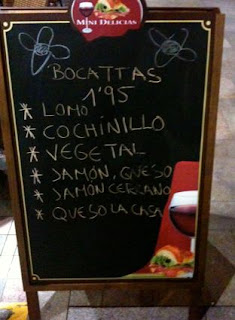 MINI DELICIAS
BOCATTAS
1'95
* LOMO
* COCHINILLO
* VEGETAL
* JAMÓN, QUESO
* JAMON CERRANO
* QUESO LA CASA